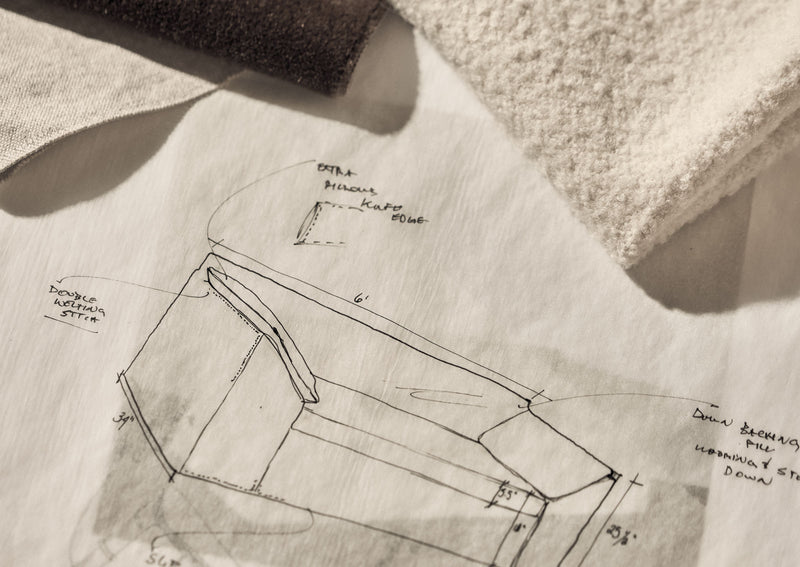 EXTRA
PILLOWS
KNIFE
EDGE
6'
DOUBLE
WELTING
STITCH
34"
DOWN BACKING
FILL
DOWN
3.5"
25 ½"
SLIP